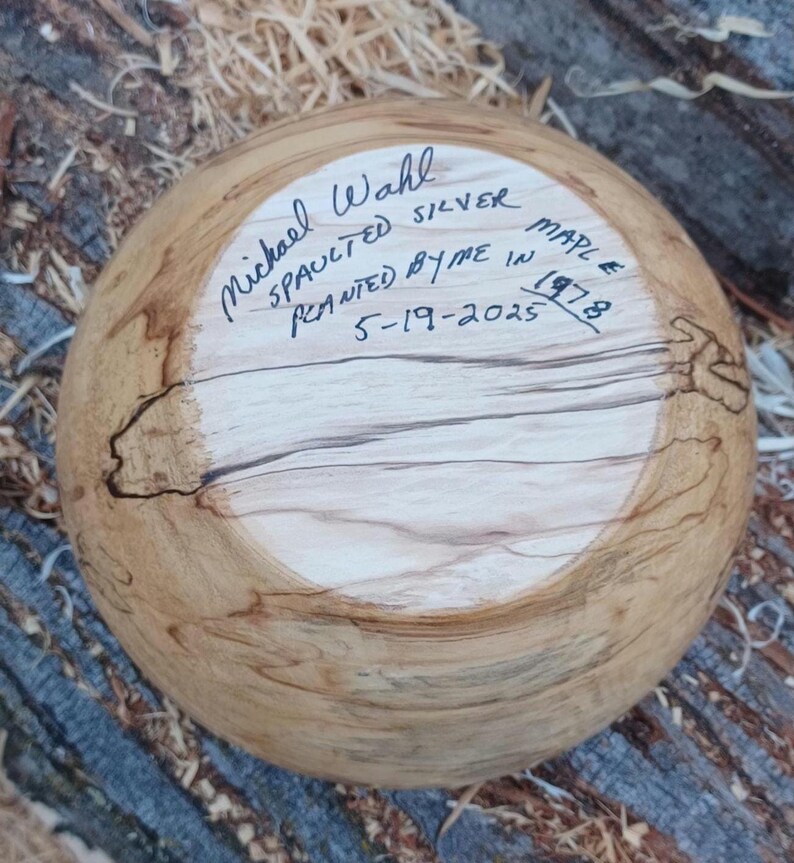 Michael Wahl
SPAULTED SILVER MAPLE
PLANTED BY ME IN 1978
5-19-2025